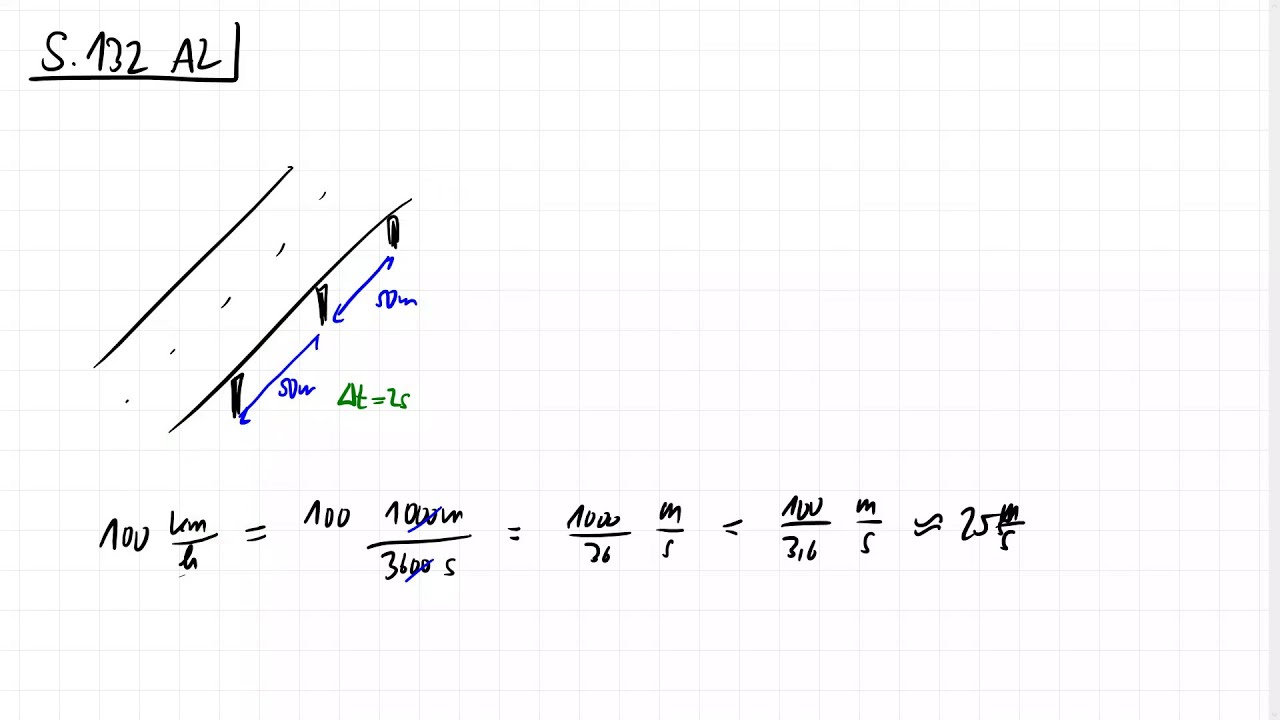 S. 132 A2
50m
50m Δt = 2s
100 km/h = 100 1000m/3600 s = 1000/36 m/s = 100/3,6 m/s ≈ 25 m/s